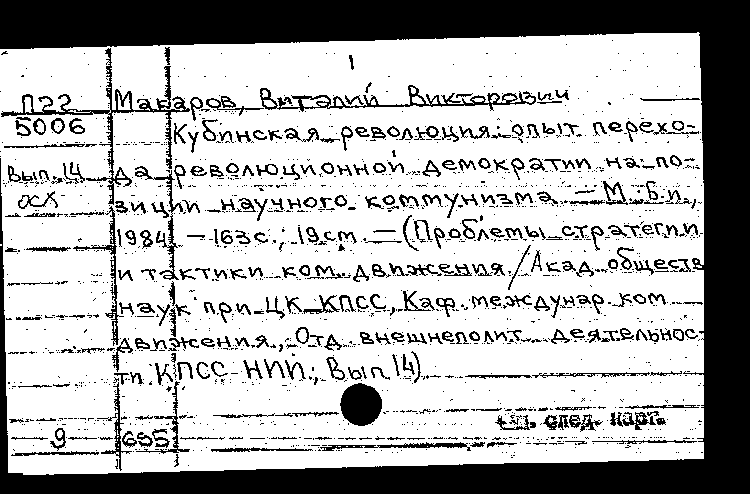 1
П22 Макаров, Виталий Викторович
5006 Кубинская революция: опыт перехо-
Вып.14 да революционной демократии на по-
осх зиции научного коммунизма. — М.: Б.и.,
1984. — 163 с.; 19 см. — (Проблемы стратегии
и тактики ком. движения / Акад. обществ.
наук при ЦК КПСС, Каф. междунар. ком.
движения, Отд. внешнеполит. деятельнос-
ти КПСС НИИ.; Вып. 14)
См. след. карт.
9 685